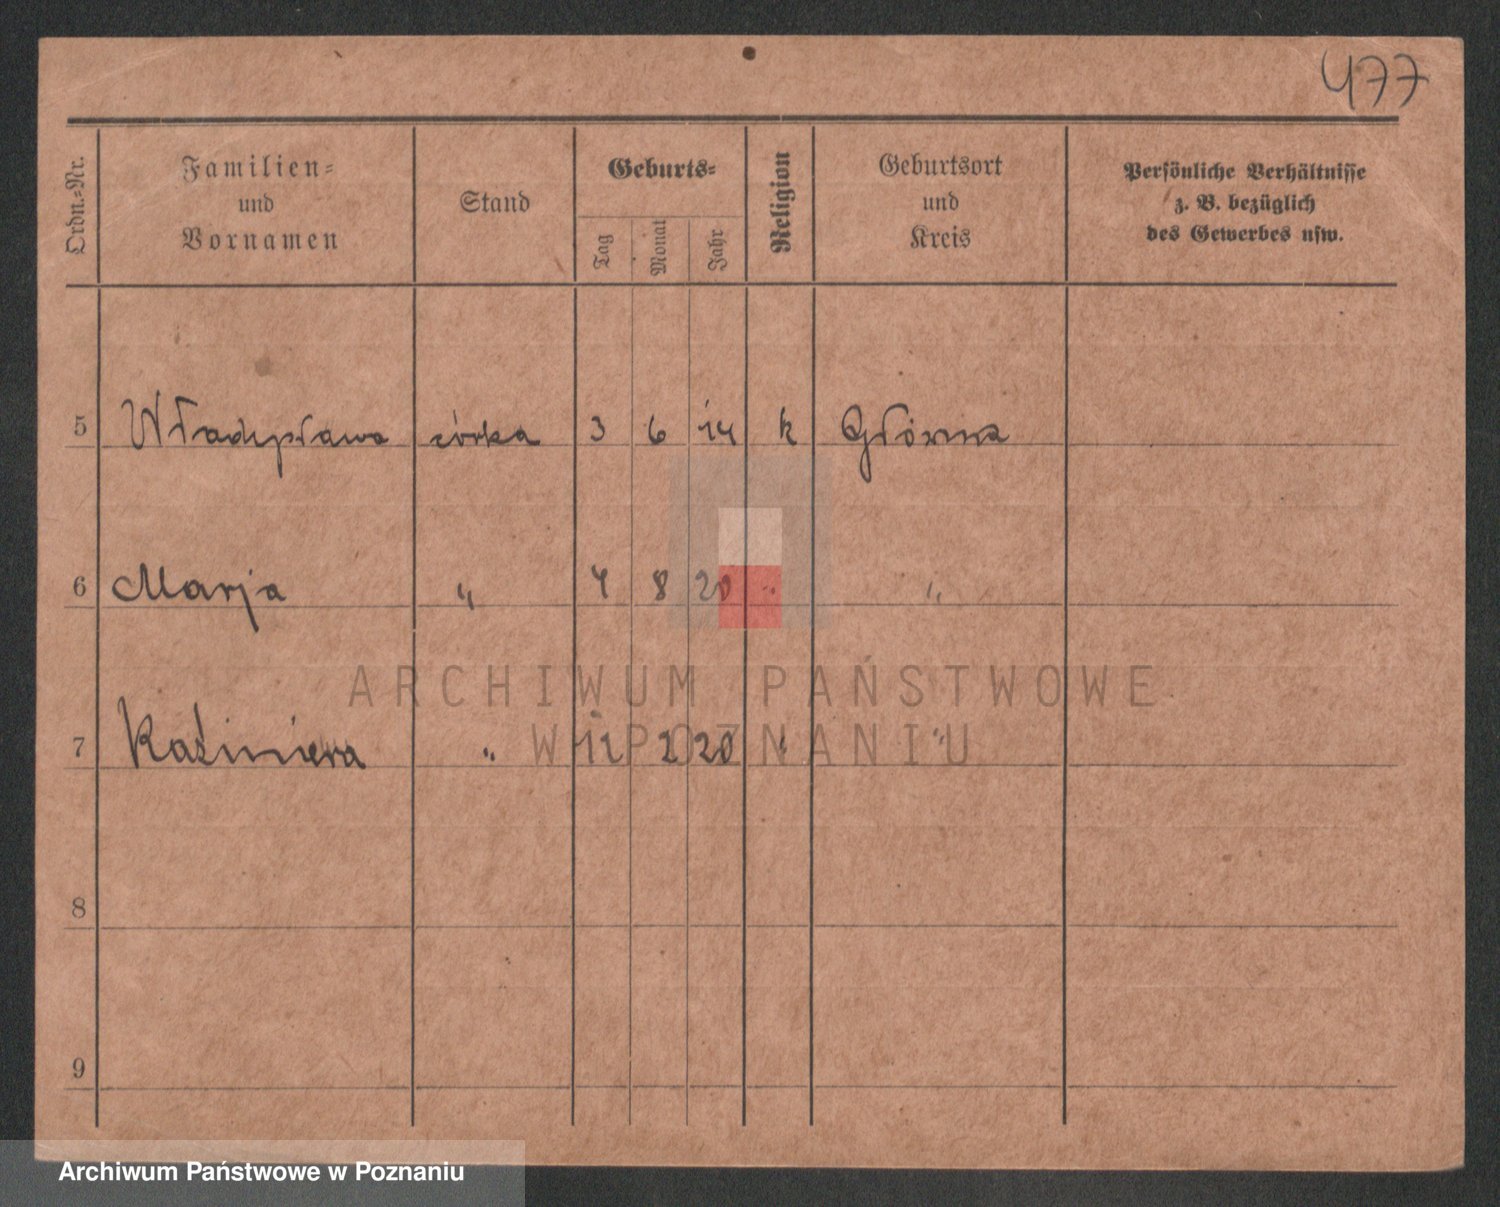 477
Ordn.-Nr.
Familien-
und
Vornamen
Stand
Geburts-
Tag
Monat
Jahr
Religion
Geburtsort
und
Kreis
Persönliche Verhältnisse
z. B. bezüglich
des Gewerbes usw.
5 Władysława córka 3 6 14 k Główna
6 Marja " 4 8 20 " "
7 Kaźimiera " 12 2 20 " "
8
9
ARCHIWUM PAŃSTWOWE
W POZNANIU
Archiwum Państwowe w Poznaniu